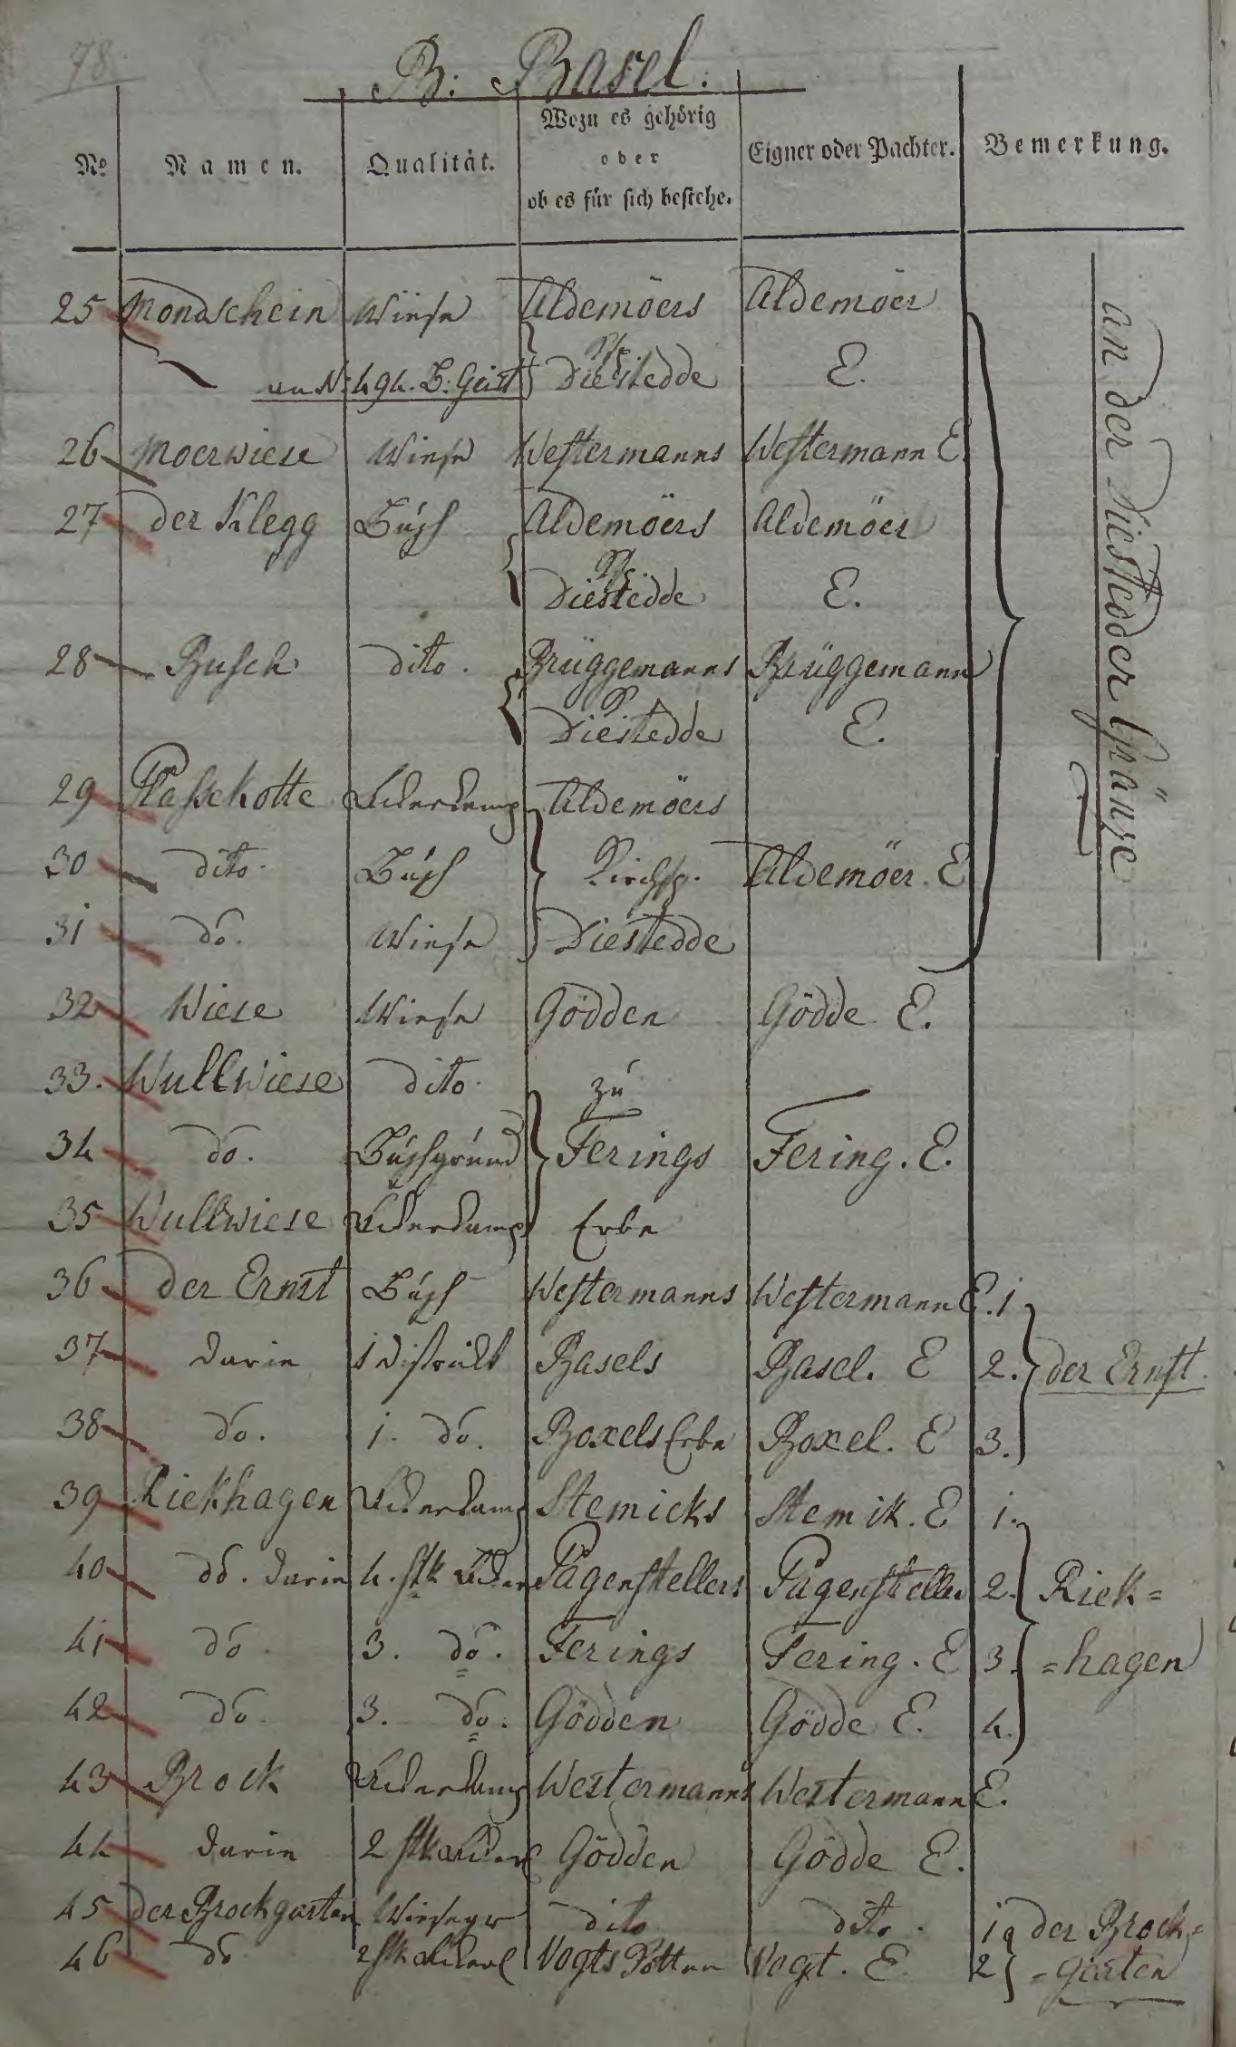 78.
B: Basel.
No Namen. Qualität. Wozu es gehörig oder ob es für sich bestehe. Eigner oder Pachter. Bemerkung.
25 Mondschein Wiese Aldemöers Aldemöer
B: Geist Diestedde E.
26 Moerwiese Wiese Westermanns Westermann E.
27 der Klegg Busch Aldemöers Aldemöer
Diestedde E.
28 Busch dito. Brüggemanns Brüggemann
Diestedde E.
an der Diestedder Gränze
29 Plasskotte Ackerkamp Aldemöers
30 dito. Busch Kirchsp. Aldemöer. E
31 do. Wiese Diestedde
32 Wiese Wiese Gödden Gödde E.
33. Wullwiese dito. zu
34 do. Buschgrund Ferings Fering. E.
35 Wullwiese Ackerkamp Erbe
36 der Ernst Busch Westermanns Westermann E. 1
37 darin 1 District Basels Basel. E 2. der Ernst.
38 do. 1. do. Boxels Erbe Boxel. E 3.
39 Riekhagen Ackerkamp Stemicks Stemik. E 1.
40 do. darin 4. stk Acker Pagenstellers Pagensteller 2. Riek=
41 do 3. do. Ferings Fering. E 3. =hagen
42 do 3. do. Gödden Gödde E. 4.
43 Brock Ackerkamp Westermanns Westermann E.
44 darin 2 stk Acker Gödden Gödde E.
45 der Brockgarten dito dito. 1 der Brock=
46 do 2 stk Vogts Vogt. E. 2 =Garten